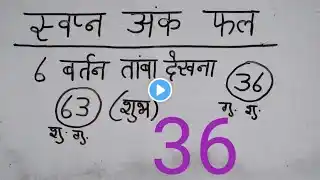 स्वप्न अंक फल
6 बर्तन तांबा देखना
63 (शुभ) 36
शु. गु. गु. शु.
36